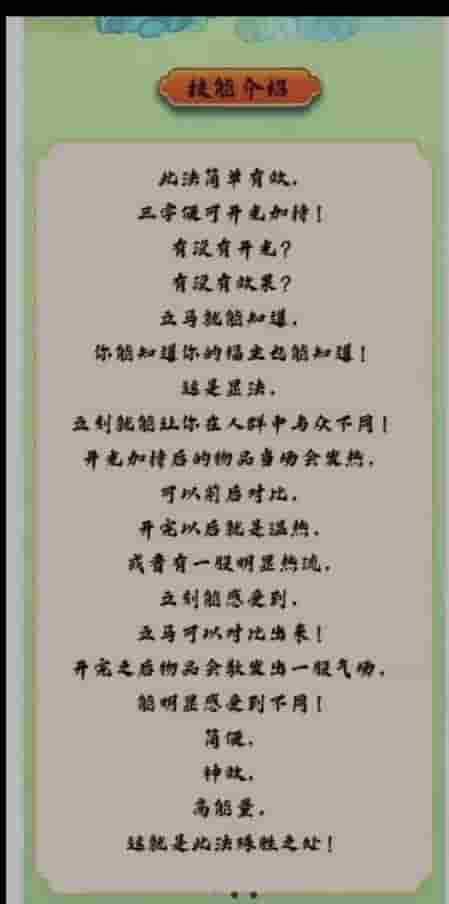 技能介绍
此法简单有效，
三字便可开光加持！
有没有开光？
有没有效果？
立马就能知道，
你能知道你的福主也能知道！
这是显法，
立刻就能让你在人群中与众不同！
开光加持后的物品当场会发热，
可以前后对比，
开完以后就是温热，
或者有一股明显热流，
立刻能感受到，
立马可以对比出来！
开完之后物品会散发出一股气场，
能明显感受到不同！
简便，
神效，
高能量，
这就是此法殊胜之处！